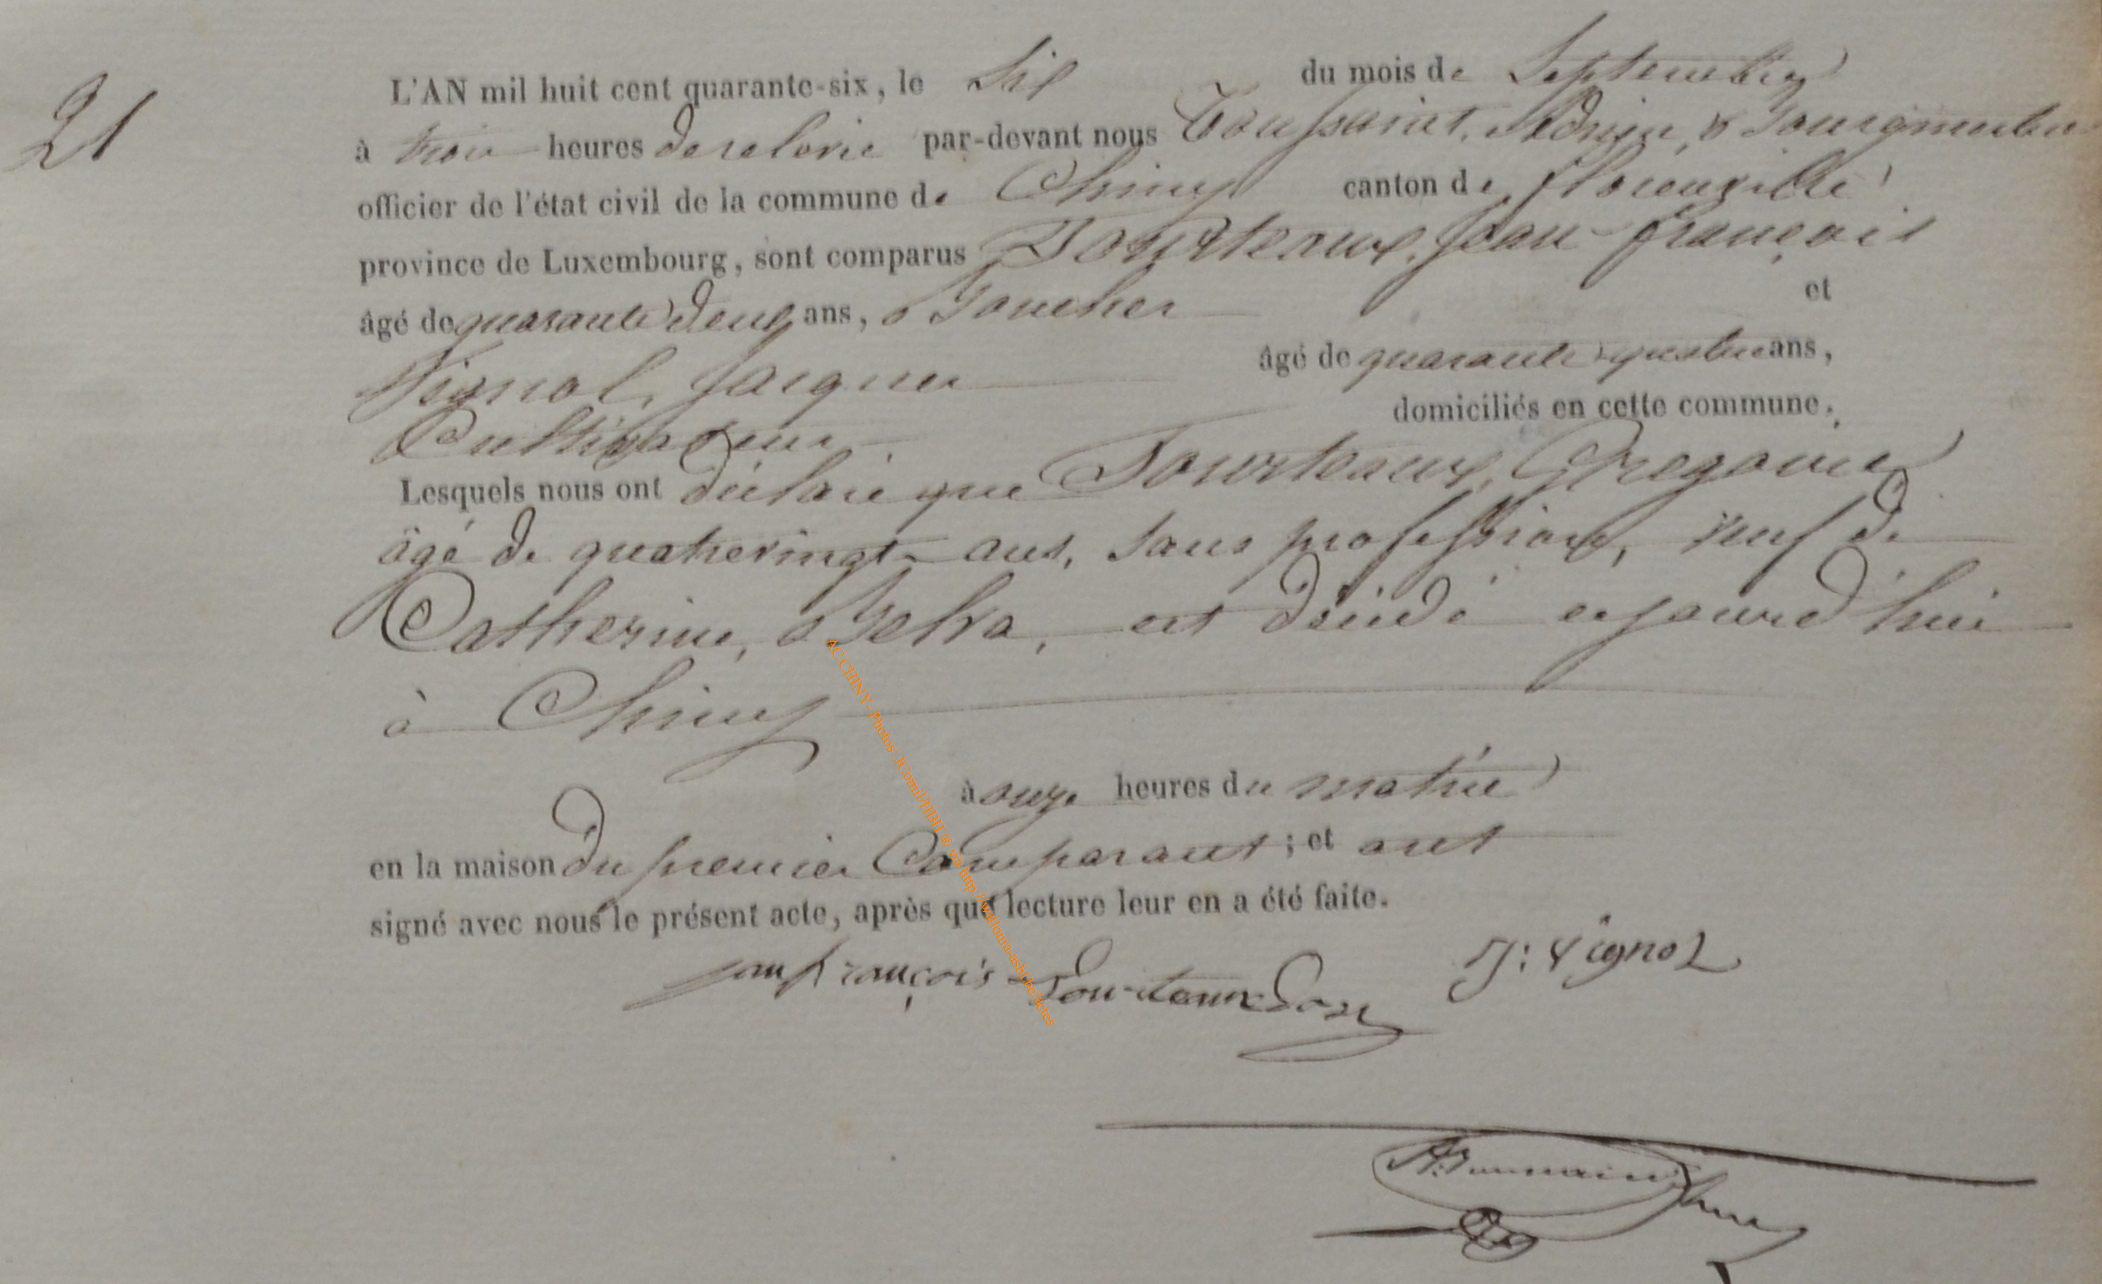 21
L'AN mil huit cent quarante-six, le Six du mois de Septembre
à trois heures de relevée par-devant nous Toussaint, Adrien, Bourgmestre
officier de l'état civil de la commune de Chiny canton de florenville
province de Luxembourg, sont comparus Tourteaux, Jean-françois
âgé de quarante deux ans, Boucher et
Vignol, Jacques âgé de quarante quatre ans,
Cultivateur domiciliés en cette commune.
Lesquels nous ont déclaré que Tourteaux, Gregoire
âgé de quatrevingt ans, sans profession, veuf de
Catherine, est décédé cejourd'hui
à Chiny
à onze heures du matin
en la maison du premier Comparant ; et ont
signé avec nous le présent acte, après que lecture leur en a été faite.
jean françois Tourteaux J: Vignol
A. Toussaint